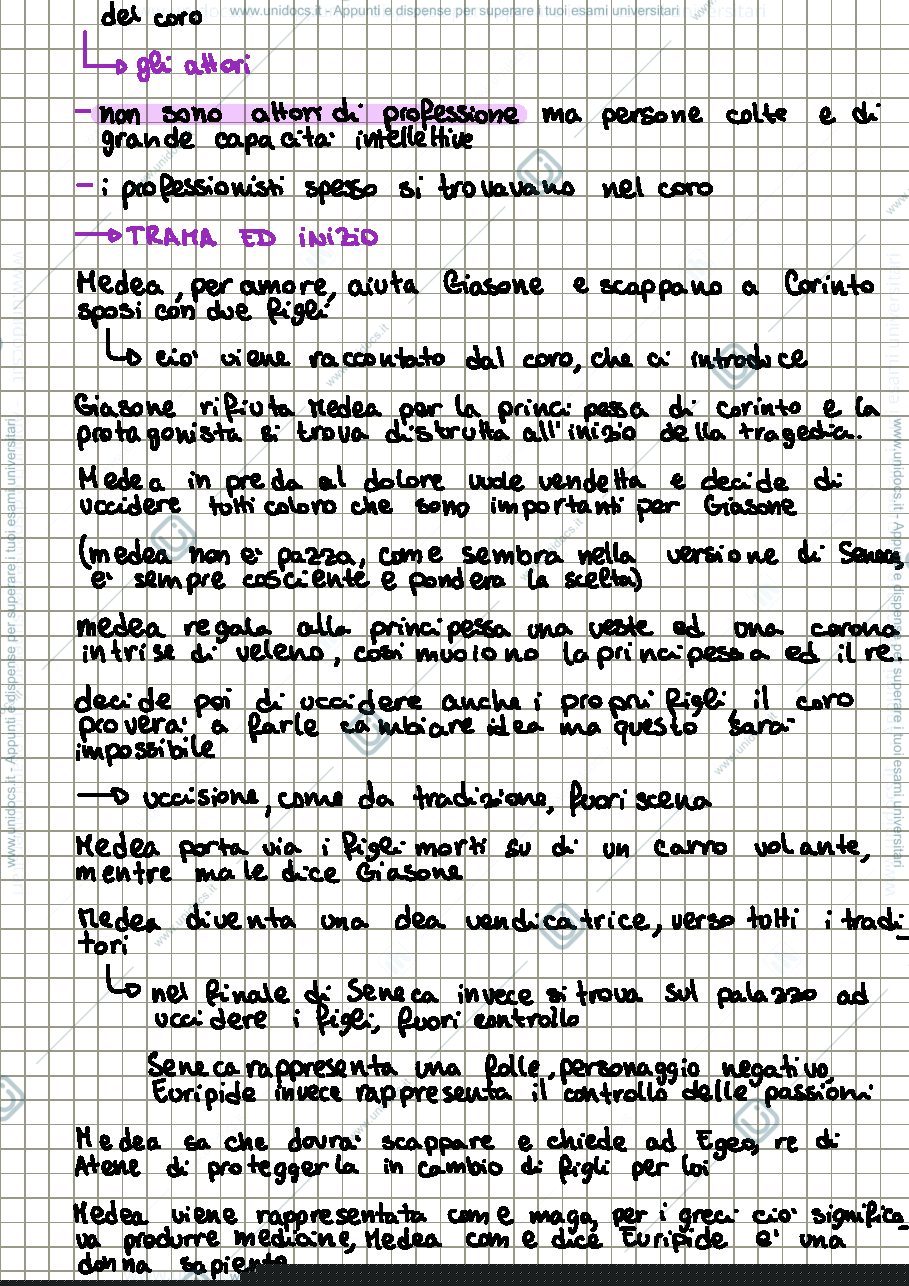 www.unidocs.it - Appunti e dispense per superare i tuoi esami universitari
del coro
gli attori
- non sono attori di professione ma persone colte e di
grande capacità intellettive
- i professionisti spesso si trovavano nel coro
→ TRAMA ED INIZIO
Medea, per amore, aiuta Giasone e scappano a Corinto
sposi con due figli
ciò viene raccontato dal coro, che ci introduce
Giasone rifiuta Medea per la principessa di corinto e la
protagonista si trova distrutta all'inizio della tragedia.
Medea in preda al dolore vuole vendetta e decide di
uccidere tutti coloro che sono importanti per Giasone
(medea non è pazza, come sembra nella versione di Seneca,
è sempre cosciente e pondera la scelta)
medea regala alla principessa una veste ed una corona
intrise di veleno, così muoiono la principessa ed il re.
decide poi di uccidere anche i propri figli, il coro
proverà a farle cambiare idea ma questo sarà
impossibile
→ uccisione, come da tradizione, fuori scena
Medea porta via i figli morti su di un carro volante,
mentre maledice Giasone
Medea diventa una dea vendicatrice, verso tutti i tradi_
tori
nel finale di Seneca invece si trova sul palazzo ad
uccidere i figli, fuori controllo
Seneca rappresenta una folle, personaggio negativo,
Euripide invece rappresenta il controllo delle passioni
Medea sa che dovrà scappare e chiede ad Egeo, re di
Atene di proteggerla in cambio di figli per loi
Medea viene rappresentata come maga, per i greci ciò significa_
va produrre medicine, Medea come dice Euripide è una
donna sapiente
www.unidocs.it - Appunti e dispense per superare i tuoi esami universitari